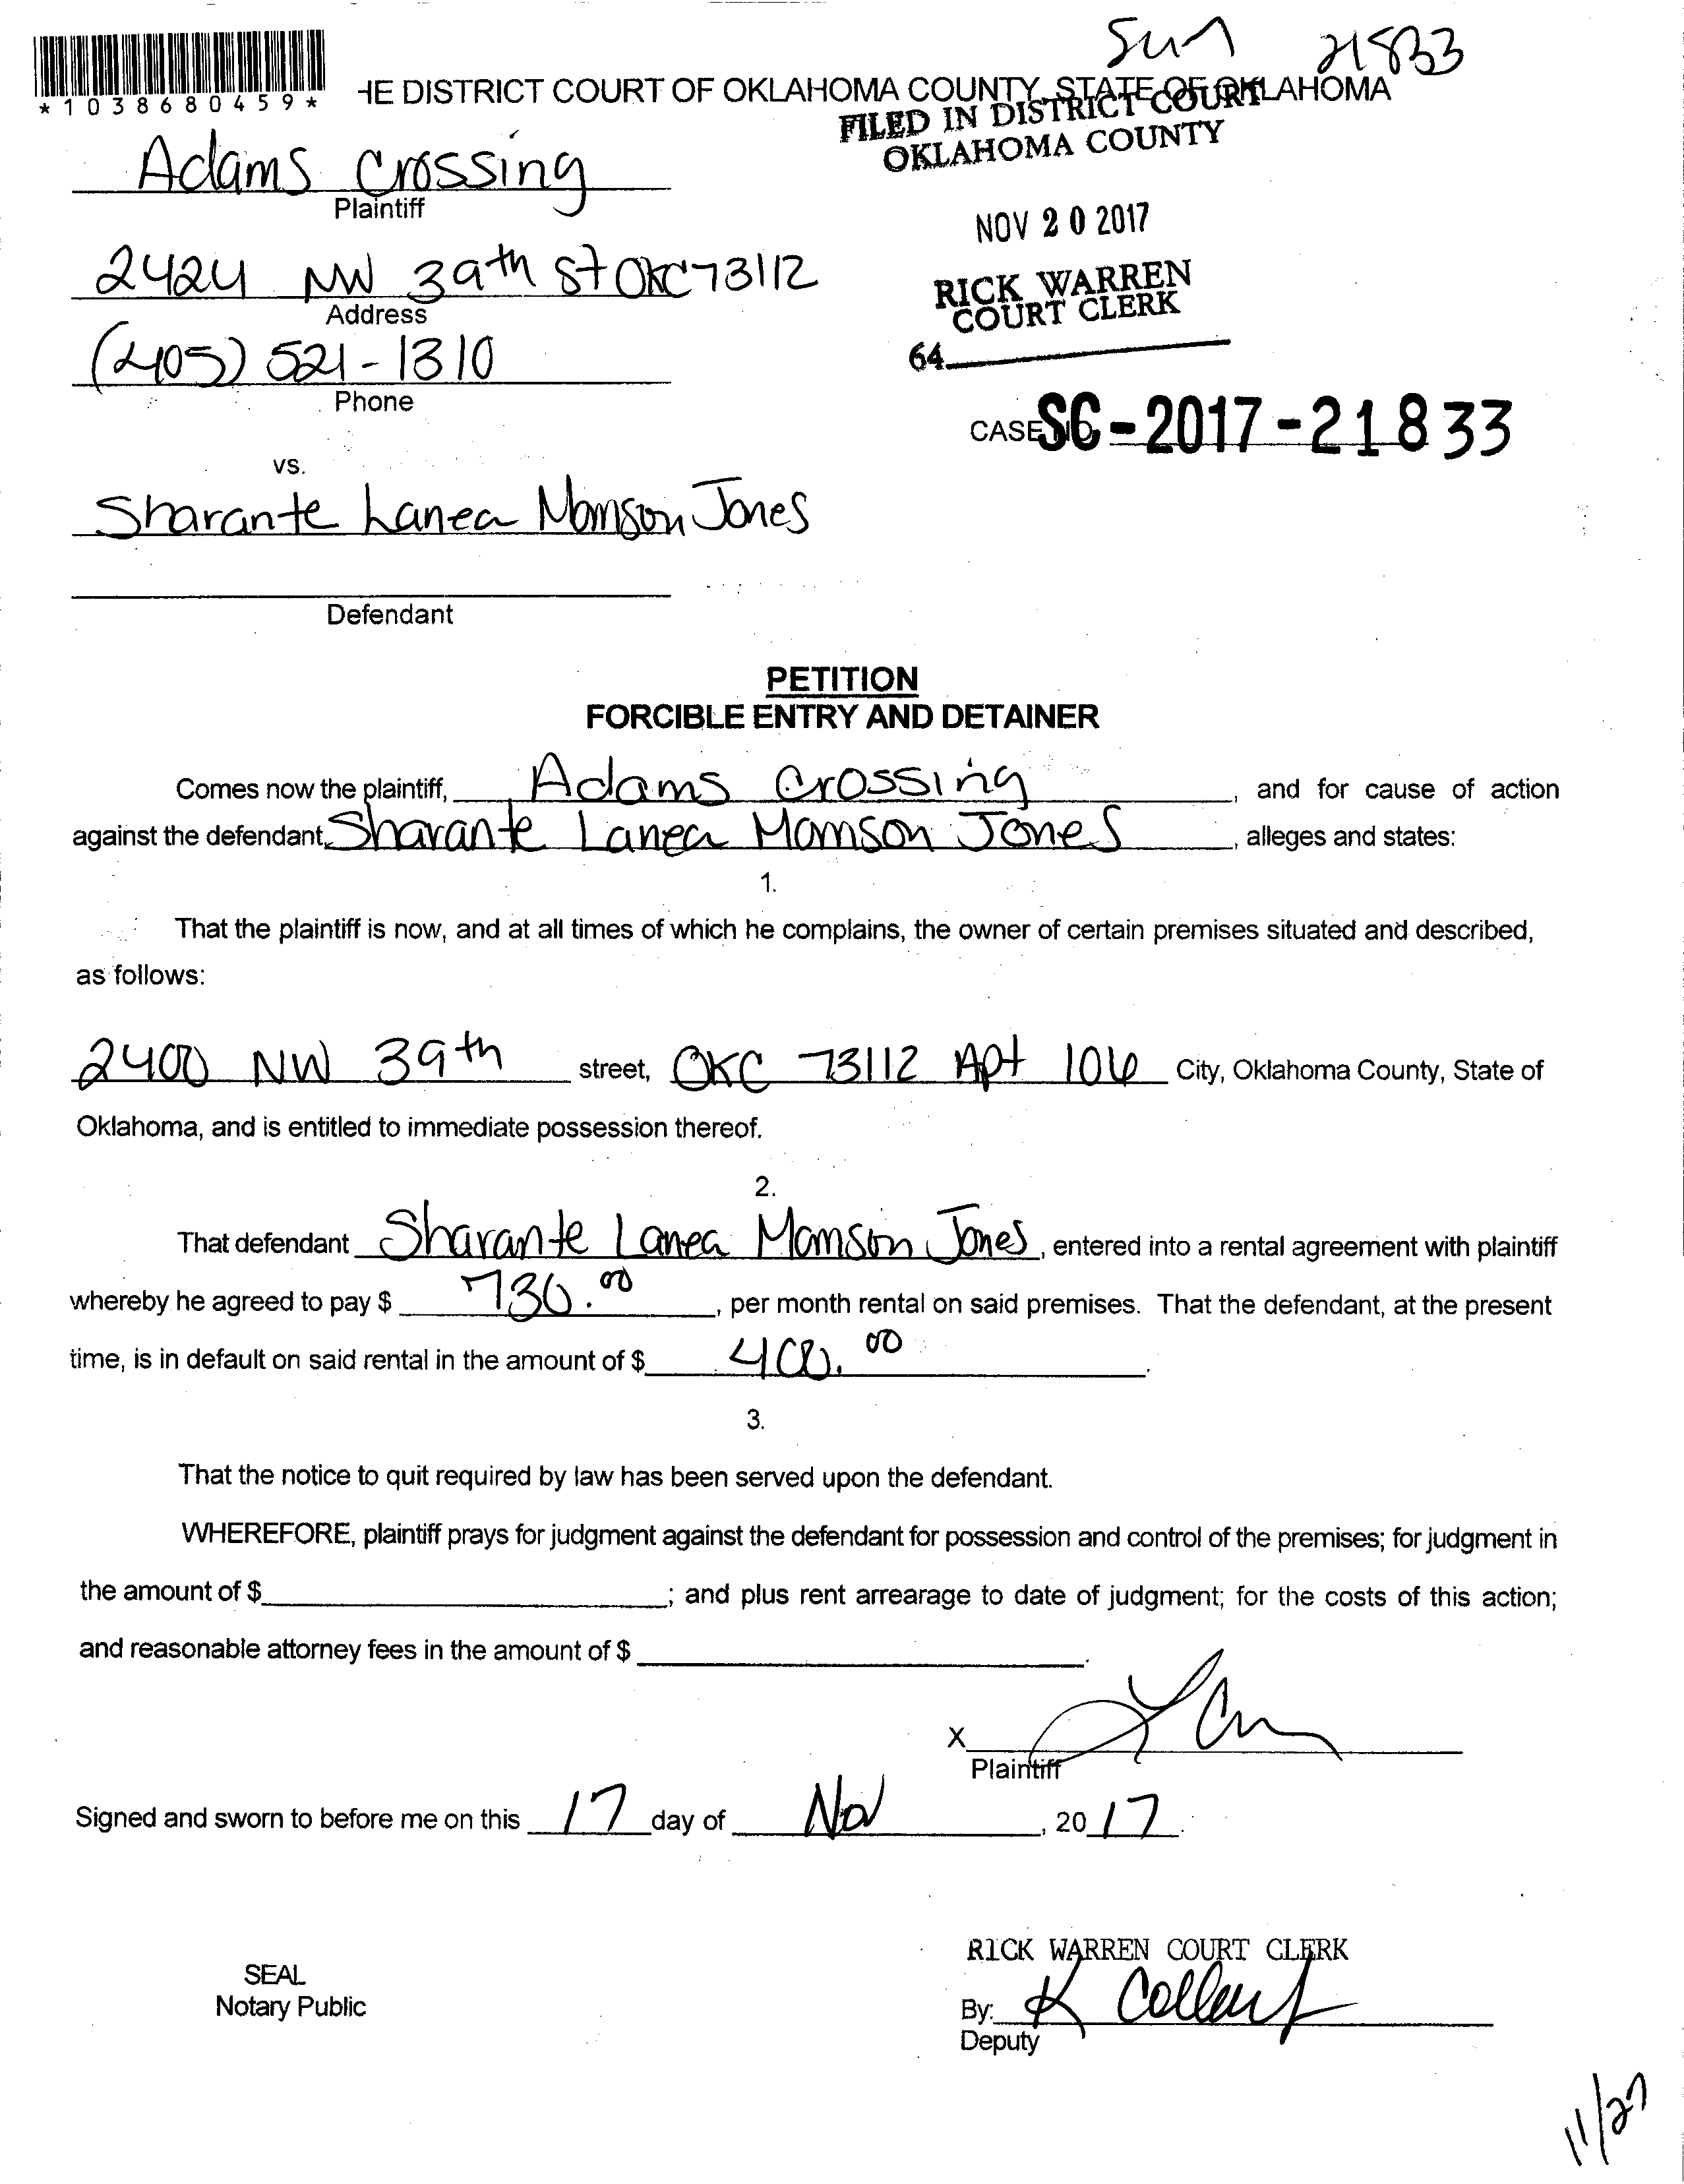 Sun 21833
*1038680459*
HE DISTRICT COURT OF OKLAHOMA COUNTY, STATE OF OKLAHOMA
FILED IN DISTRICT COURT
OKLAHOMA COUNTY
Adams Crossing
Plaintiff
NOV 20 2017
2424 NW 39th St OKC 73112
Address
RICK WARREN
COURT CLERK
(405) 521-1310
Phone
64
CASE NO. SC-2017-21833
vs.
Sharante Lanea Momson Jones
Defendant
PETITION
FORCIBLE ENTRY AND DETAINER
Comes now the plaintiff, Adams Crossing, and for cause of action
against the defendant, Sharante Lanea Momson Jones, alleges and states:
1.
That the plaintiff is now, and at all times of which he complains, the owner of certain premises situated and described,
as follows:
2400 NW 39th street, OKC 73112 Apt 106 City, Oklahoma County, State of
Oklahoma, and is entitled to immediate possession thereof.
2.
That defendant Sharante Lanea Momson Jones, entered into a rental agreement with plaintiff
whereby he agreed to pay $ 730.00, per month rental on said premises. That the defendant, at the present
time, is in default on said rental in the amount of $ 400.00.
3.
That the notice to quit required by law has been served upon the defendant.
WHEREFORE, plaintiff prays for judgment against the defendant for possession and control of the premises; for judgment in
the amount of $ ; and plus rent arrearage to date of judgment; for the costs of this action;
and reasonable attorney fees in the amount of $ .
X
Plaintiff
Signed and sworn to before me on this 17 day of Nov, 20 17.
RICK WARREN COURT CLERK
SEAL
Notary Public
By: K
Deputy
11/27